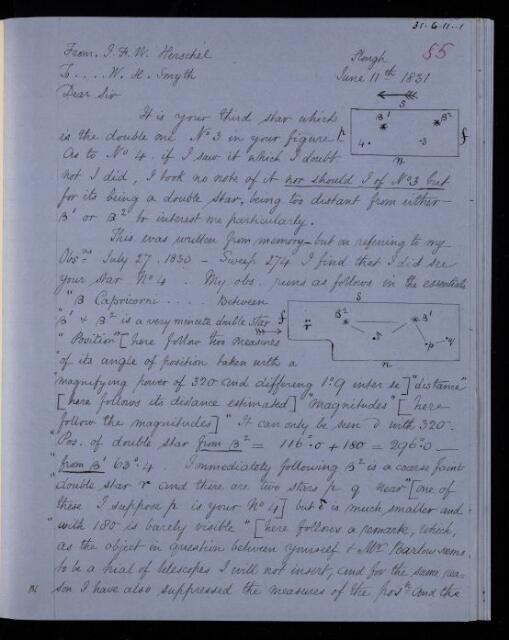 31-6-11-1
55
From J. F. W. Herschel
Slough
To .... W. H. Smyth
June 11th 1831
Dear Sir
It is your third star which
is the double one No 3 in your figure
As to No 4. if I saw it which I doubt
not I did, I took no note of it nor should I of No 3 but
for its being a double star, being too distant from either
β1 or β2 to interest me particularly.
This was written from memory - but on referring to my
Obsns July 27. 1830 - Sweep 274 I find that I did see
your star No 4. My obs. runs as follows in the essentials
"β Capricorni .... Between
"β1 & β2 is a very minute double star
"Position" [here follow two measures
"of its angle of position taken with a
"magnifying power of 320 and differing 1°.9 inter se] "distance"
[here follows its distance estimated] "Magnitudes" [here
follow the magnitudes] "It can only be seen with 320.
"Pos. of double star from β2 = 116°.0 + 180 = 296°.0 —
"from β1 63°.4. Immediately following β2 is a coarse faint
"double star r and there are two stars p q near" [one of
these I suppose p is your No 4] but is much smaller and
"with 180 is barely visible" [here follows a remark, which,
as the object in question between yourself & Mr Barlow seems
to be a trial of telescopes I will not insert, and for the same rea-
son I have also suppressed the measures of the posn and the
s
β1
β2
p
f
4
3
n
s
β2
β1
f
r
s
p
q
n